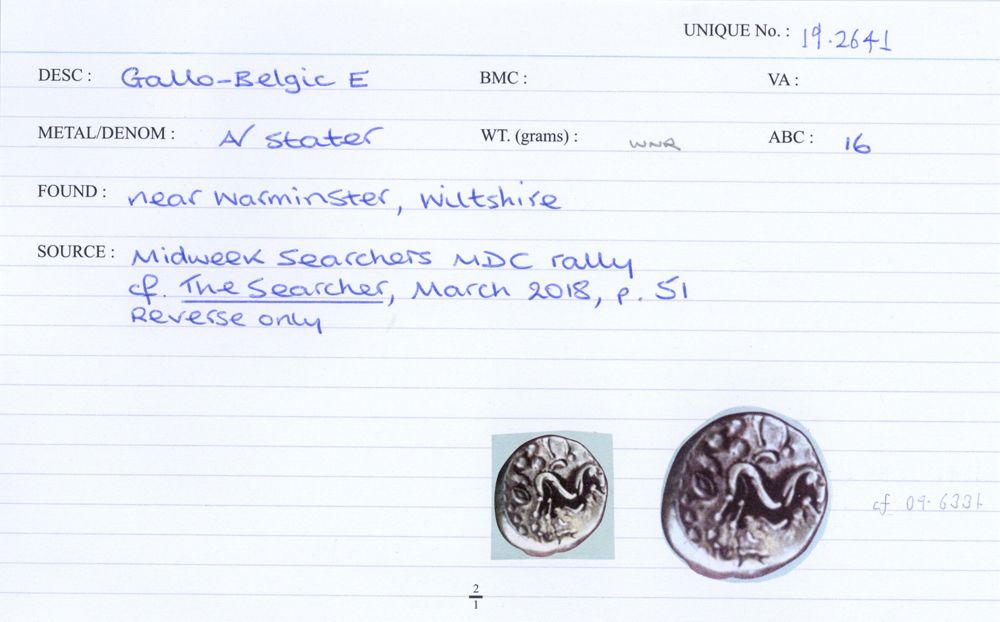 UNIQUE No. : 19.2641
DESC : Gallo-Belgic E BMC : VA :
METAL/DENOM : A/ Stater WT. (grams) : WNR ABC : 16
FOUND : near Warminster, Wiltshire
SOURCE : Midweek Searchers MDC rally
cf. The Searcher, March 2018, p. 51
Reverse only
cf 09.6331
2
1